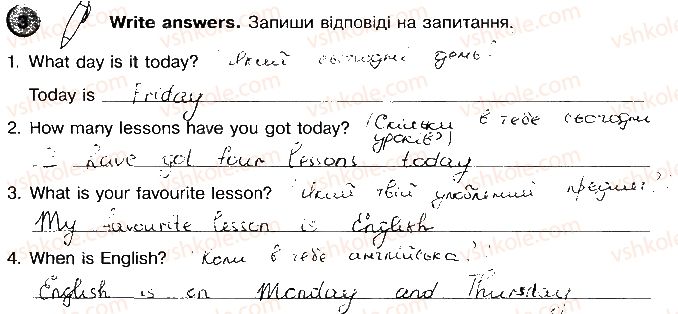 3 Write answers. Запиши відповіді на запитання.
1. What day is it today? Який сьогодні день?
Today is Friday
2. How many lessons have you got today? (Скільки в тебе сьогодні
уроків?)
I have got four lessons today
3. What is your favourite lesson? Який твій улюблений предмет?
My favourite lesson is English
4. When is English? Коли в тебе англійська?
English is on Monday and Thursday